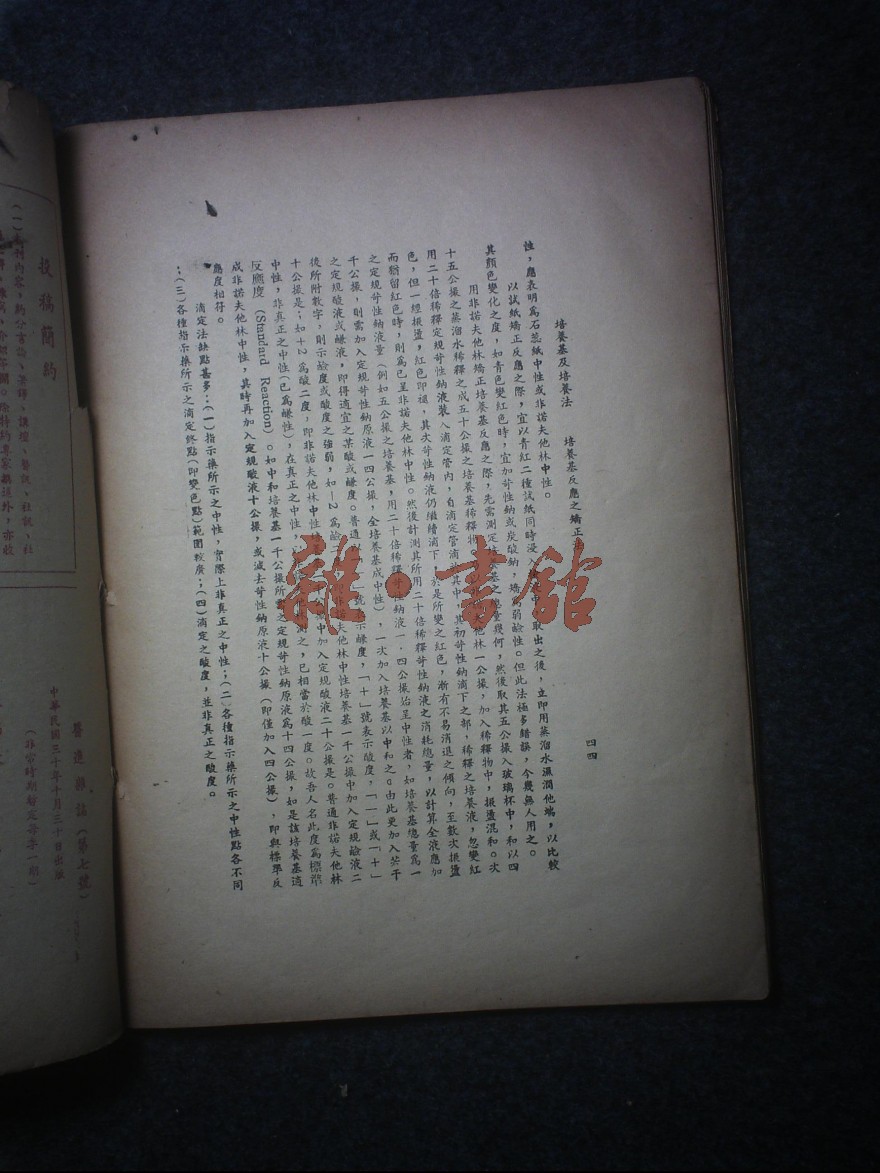 培養基及培養法　培養基反應之矯正
四四
性，應表明爲石蕊紙中性或非諾夫他林中性。
以試紙矯正反應之際，宜以青紅二種試紙同時浸入
取出之後，立卽用蒸溜水濕潤他端，以比較
其顏色變化之度，如青色變紅色時，宜加苛性鈉或炭酸鈉，矯爲弱鹼性。但此法極多錯誤，今幾無人用之。
用非諾夫他林矯正培養基反應之際，先需測定培養基之總量幾何，然後取其五公撮入玻璃杯中，和以四
十五公撮之蒸溜水稀釋之成五十公撮之培養基稀釋物
他林一公撮，加入稀釋物中，振盪混和。次
用二十倍稀釋定規苛性鈉液裝入滴定管內，自滴定管滴於其中，其初苛性鈉滴下之部，稀釋之培養液，忽變紅
色，但一經振盪，紅色卽褪，其次苛性鈉液仍繼續滴下，於是所變之紅色，漸有不易消退之傾向，至數次振盪
而猶留紅色時，則爲已呈非諾夫他林中性。然後計測其所用二十倍稀釋苛性鈉液之消耗總量，以計算全液應加
之定規苛性鈉液量（例如五公撮之培養基，用二十倍稀釋苛性鈉液一．四公撮始呈中性者，如培養基總量爲一
千公撮，則需加入定規苛性鈉原液一四公撮，全培養基成中性），一次加入培養基以中和之。由此更加入若干
之定規酸液或鹼液，卽得適宜之某酸或鹼度。普通以「
」號表示鹼度，「＋」號表示酸度，「－」或「＋」
後所附數字，則示鹼度或酸度之強弱，如－2爲鹼二
非諾夫他林中性培養基一千公撮中加入定規鹼液二
十公撮是；如＋2爲酸二度，卽非諾夫他林中性培
公撮中加入定規酸液二十公撮是。普通非諾夫他林
中性，非真正之中性（已爲鹼性），在真正之中性，
他林測之，已相當於酸一度。故吾人名此度爲標準
反應度（Standard Reaction）。如中和培養基一千公撮所需之定規苛性鈉原液爲十四公撮，如是該培養基適
成非諾夫他林中性，其時再加入定規酸液十公撮，或減去苛性鈉原液十公撮（卽僅加入四公撮），卽與標準反
應度相符。
滴定法缺點甚多：（一）指示藥所示之中性，實際上非真正之中性；（二）各種指示藥所示之中性點各不同
；（三）各種指示藥所示之滴定終點（卽變色點）範圍較廣；（四）滴定之酸度，並非真正之酸度。
雜·書館
投稿簡約
醫進雜誌（第七號）
中華民國三十年十月三十日出版
（非常時期暫定每季一期）